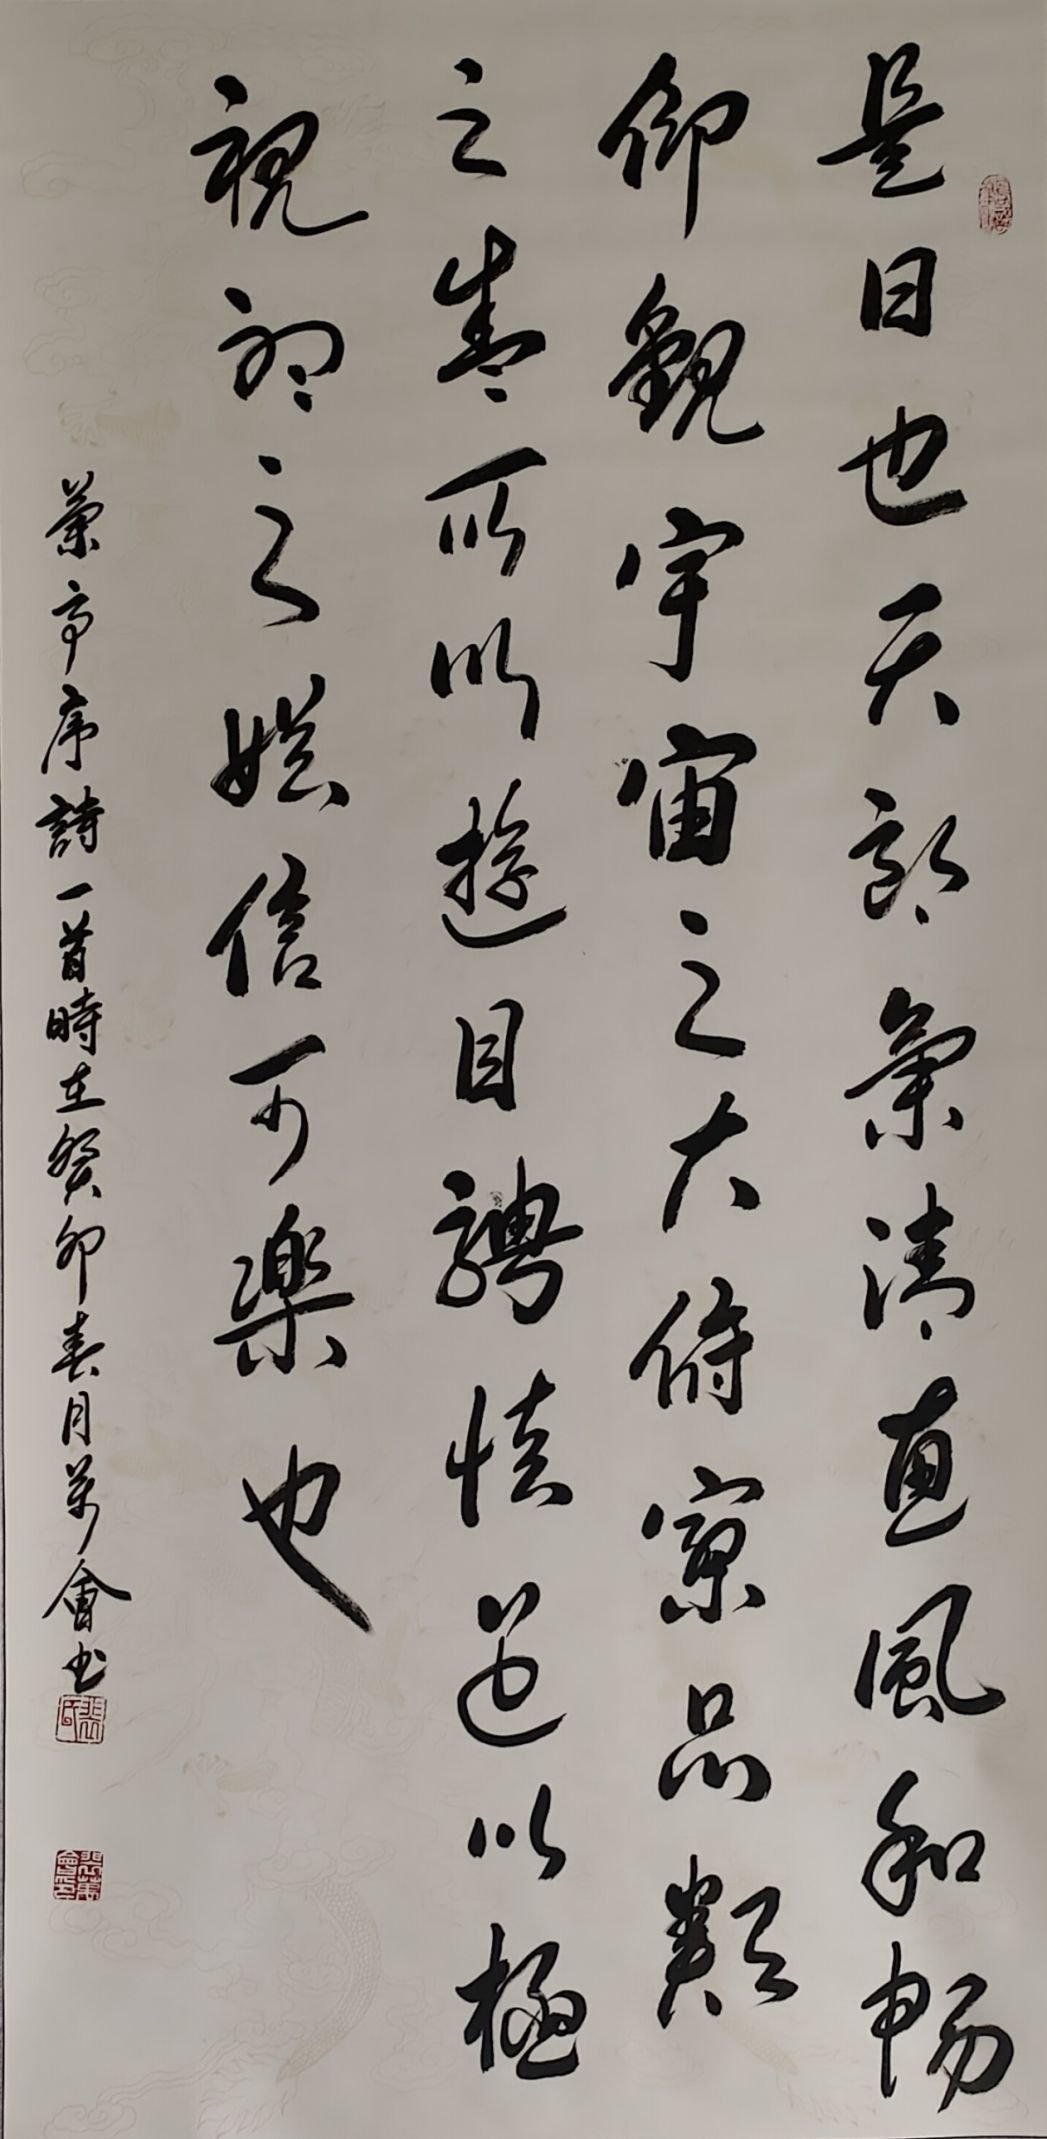 是日也天朗氣清惠風和暢
仰觀宇宙之大俯察品類
之盛所以遊目騁懷足以極
視聽之娛信可樂也
蘭亭序詩一首時在癸卯春月萬會书
裴印
裴萬會印